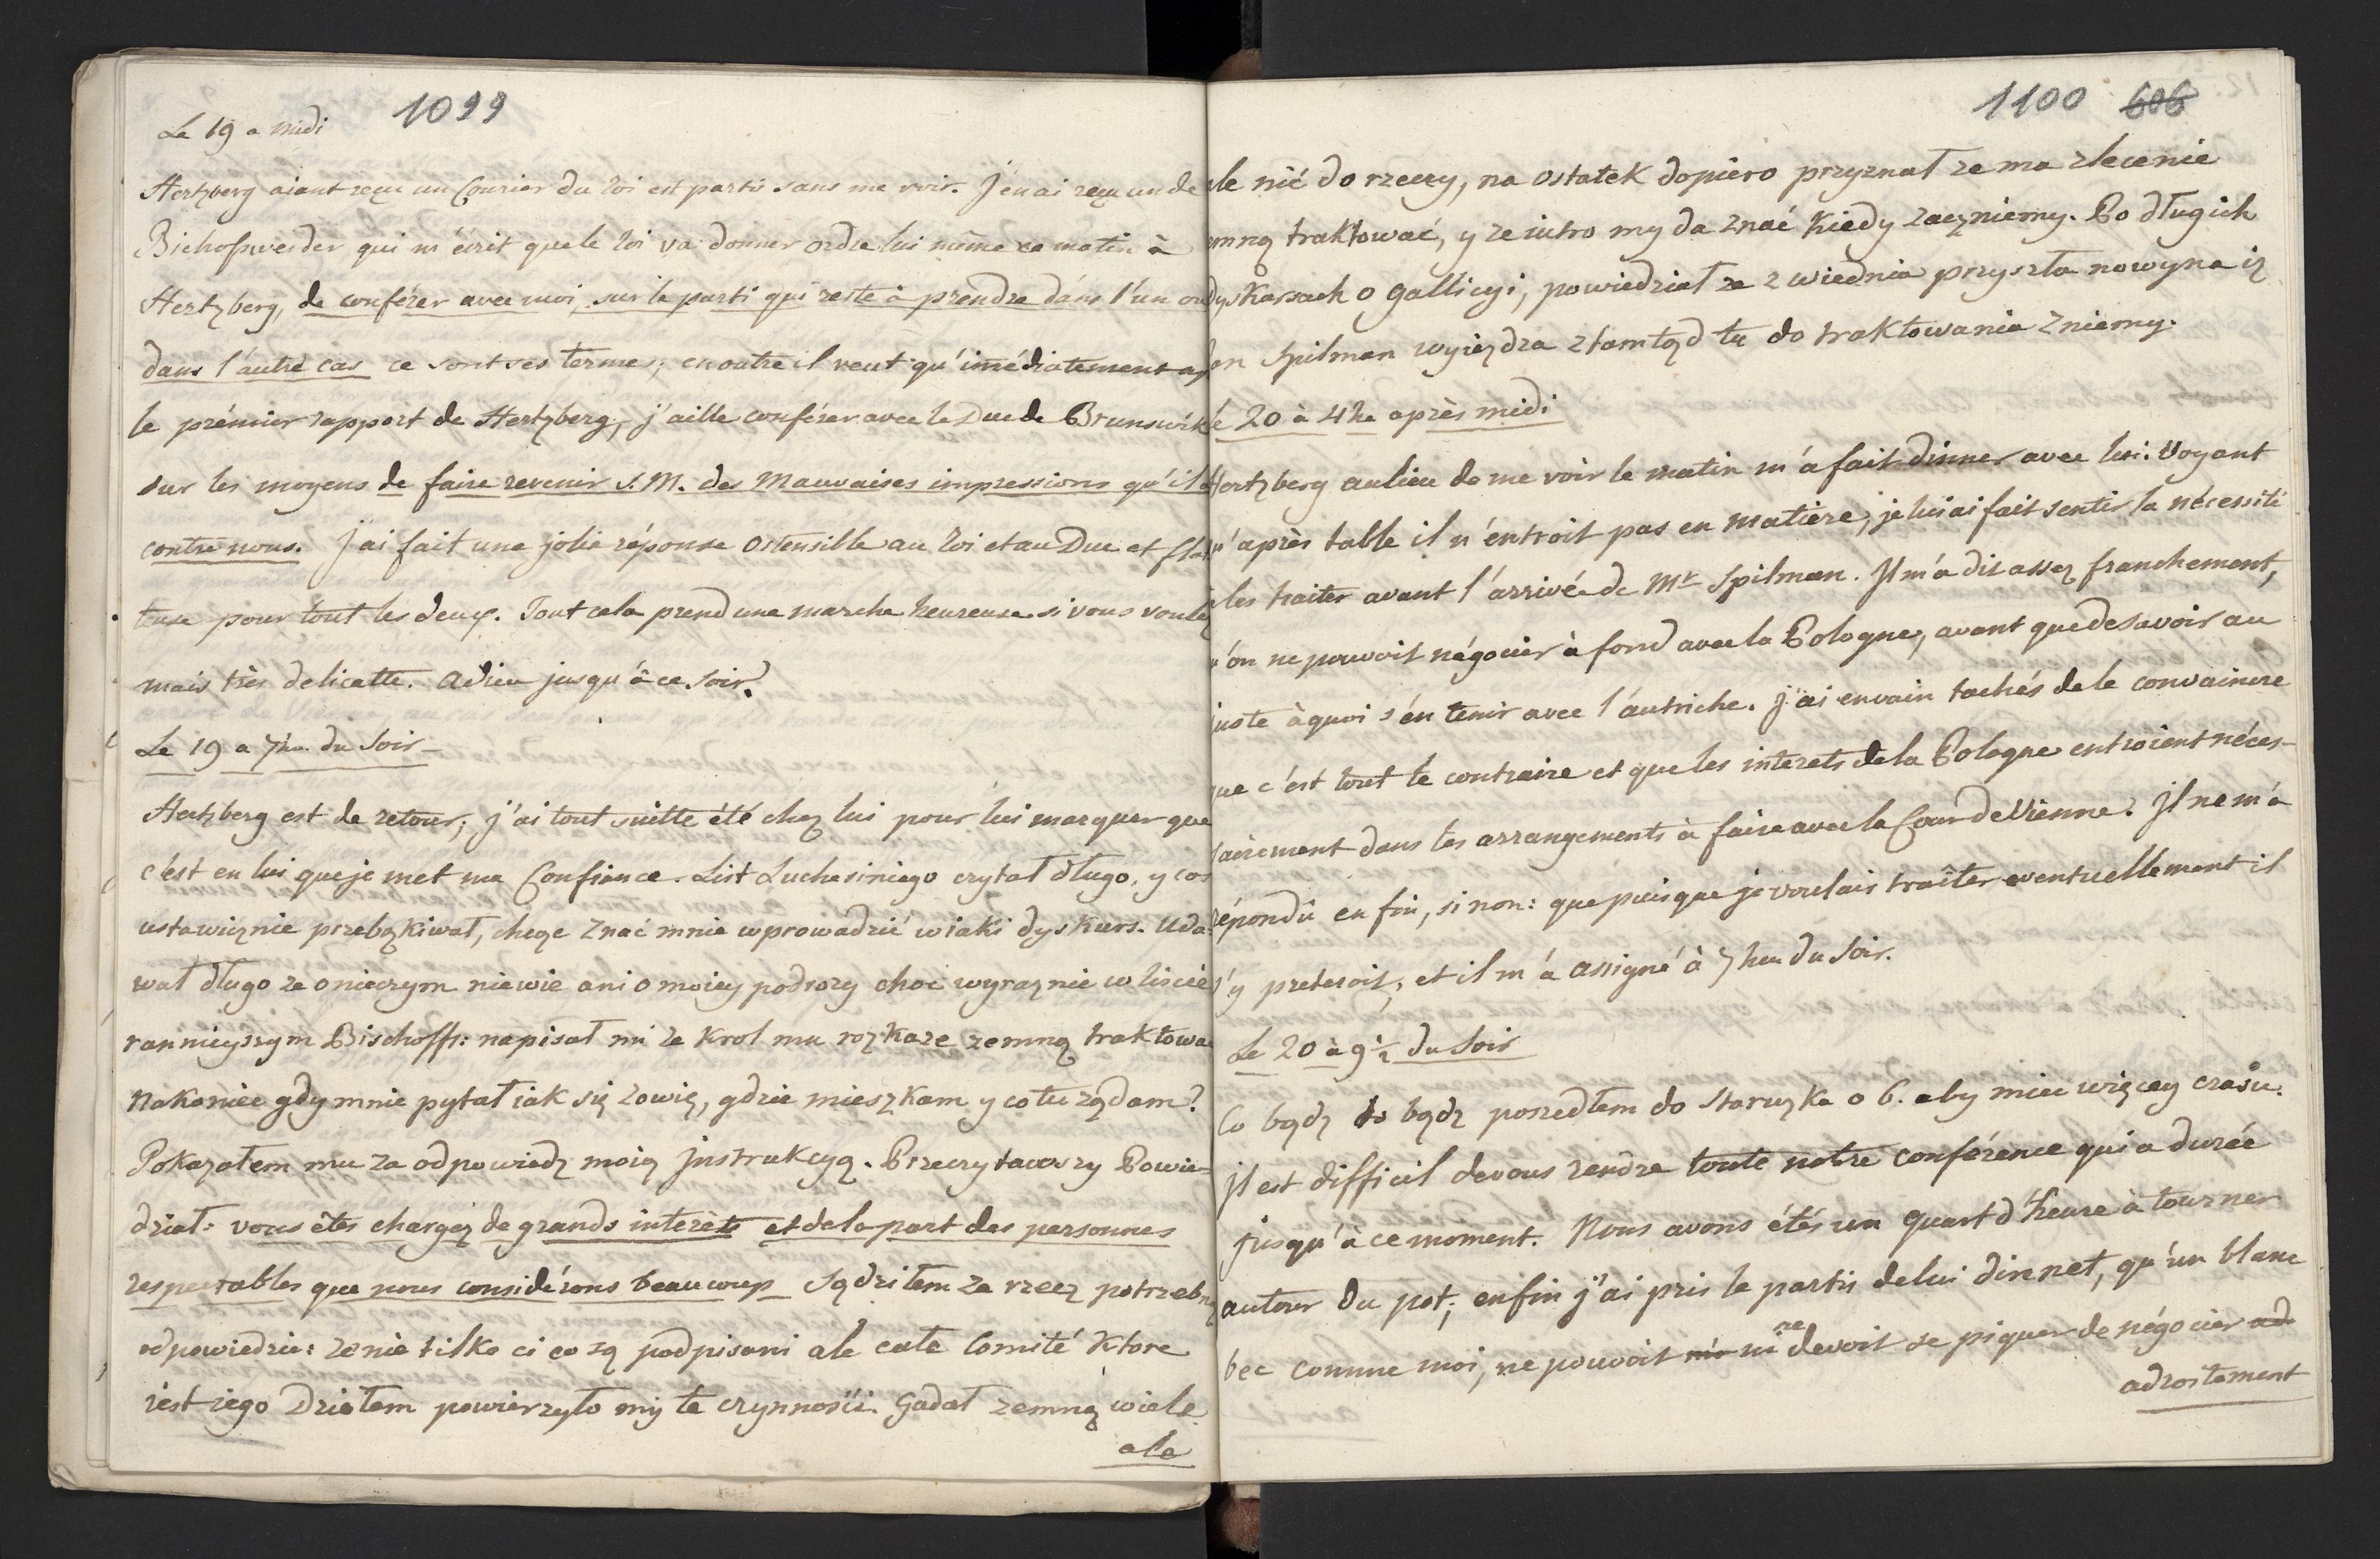 1099
Le 19 a midi
Hertzberg aiant reçu un Courier du Roi est partis sans me voir. J'en ai reçu un de
Bichofswerder qui m'écrit que le Roi va donner ordre lui même ce matin à
Hertzberg, de conférer avec moi, sur le parti qui reste à prendre dans l'un ou
dans l'autre cas ce sont ses termes; en outre il veut qu'imédiatement ap
le prémier rapport de Hertzberg, j'aille conférer avec le Duc de Brunswik
sur les moyens de faire revenir S.M. des Mauvaises impressions qu'il a
contre nous. J'ai fait une jolie réponse Ostensible au Roi et au Duc et flat
teuse pour tout les deux. Tout cela prend une marche heureuse si vous voulez
mais très delicatte. Adieu jusqu'à ce soir.
Le 19 a 7 heu. du Soir
Hertzberg est de retour; j'ai tout suitte été chez lui pour lui marquer que
c'est en lui que je met ma Confiance. List Luchesiniego czytał długo, y cos
ustawicznie przebąkiwał, chcąc znać mnie wprowadzić w iaki dyskurs. Uda-
wał długo ze o niczym nie wie ani o moiey podrozy choc wyraznie w liscie
rannieyszym Bischoffs: napisał mi ze Krol mu rozkaze zemną traktowa
Nakoniec gdy mnie pytał iak się zowię, gdzie mieszkam y co tu żądam?
Pokazałem mu za odpowiedz moią Jnstrukcyą. Przeczytawszy Powie-
dział: vous êtes chargez de grands interêts et de la part des personnes
respectables que nous considérons beaucoup Sądziłem za rzecz potrzebną
odpowiedzieć ze nie tilko ci co są podpisani ale całe Comité ktore
iest iego Dziełem powierzyło my te czynnosci. Gadał zemną wiele
ale
1100 606
ale nić do rzeczy, na ostatek dopiero przyznał ze ma zlecenie
zemną traktować, y ze iutro my da znać kiedy zaczniemy. Po długich
dyskursach o Gallicyi, powiedział ze z Wiednia przyszła nowyna iz
Pan Spilman wyieżdza ztamtąd tu do traktowania z niemy.
Le 20 à 4 he après midi
Hertzberg aulieu de me voir le matin m'a fait dinner avec lui. Voyant
qu'après table il n'entroit pas en matière, je lui ai fait sentir la nécessité
de les traiter avant l'arrivée de Mr Spilman. Il m'a dit assez franchement,
qu'on ne pouvoit négocier à fond avec la Pologne, avant que de savoir au
juste à quoi s'én tenir avec l'autriche. J'ai envain tachés de le convaincre
que c'est tout le contraire et que les interets de la Pologne entroient néces-
sairement dans les arrangements à faire avec la Cour de Vienne. Il ne m'a
répondû en fin, si non: que puisque je voulais traiter eventuellement il
s'y preteroit, et il m'a assigné à 7 heu du Soir.
Le 20 à 9 1/2 du Soir
Co bądz to bądz poszedłem do Staruzka o 6. aby miec więcey czasu.
Jl est difficil de vous rendre toute notre conférence qui a durée
jusqu'à ce moment. Nous avons étés un quart d'heure à tourner
autour du pot; enfin j'ai pris le partis de lui dir net, qu'un blanc
bec comme moi, ne pouvoit ni ne devoit se piquer de négocier ad
adroitement